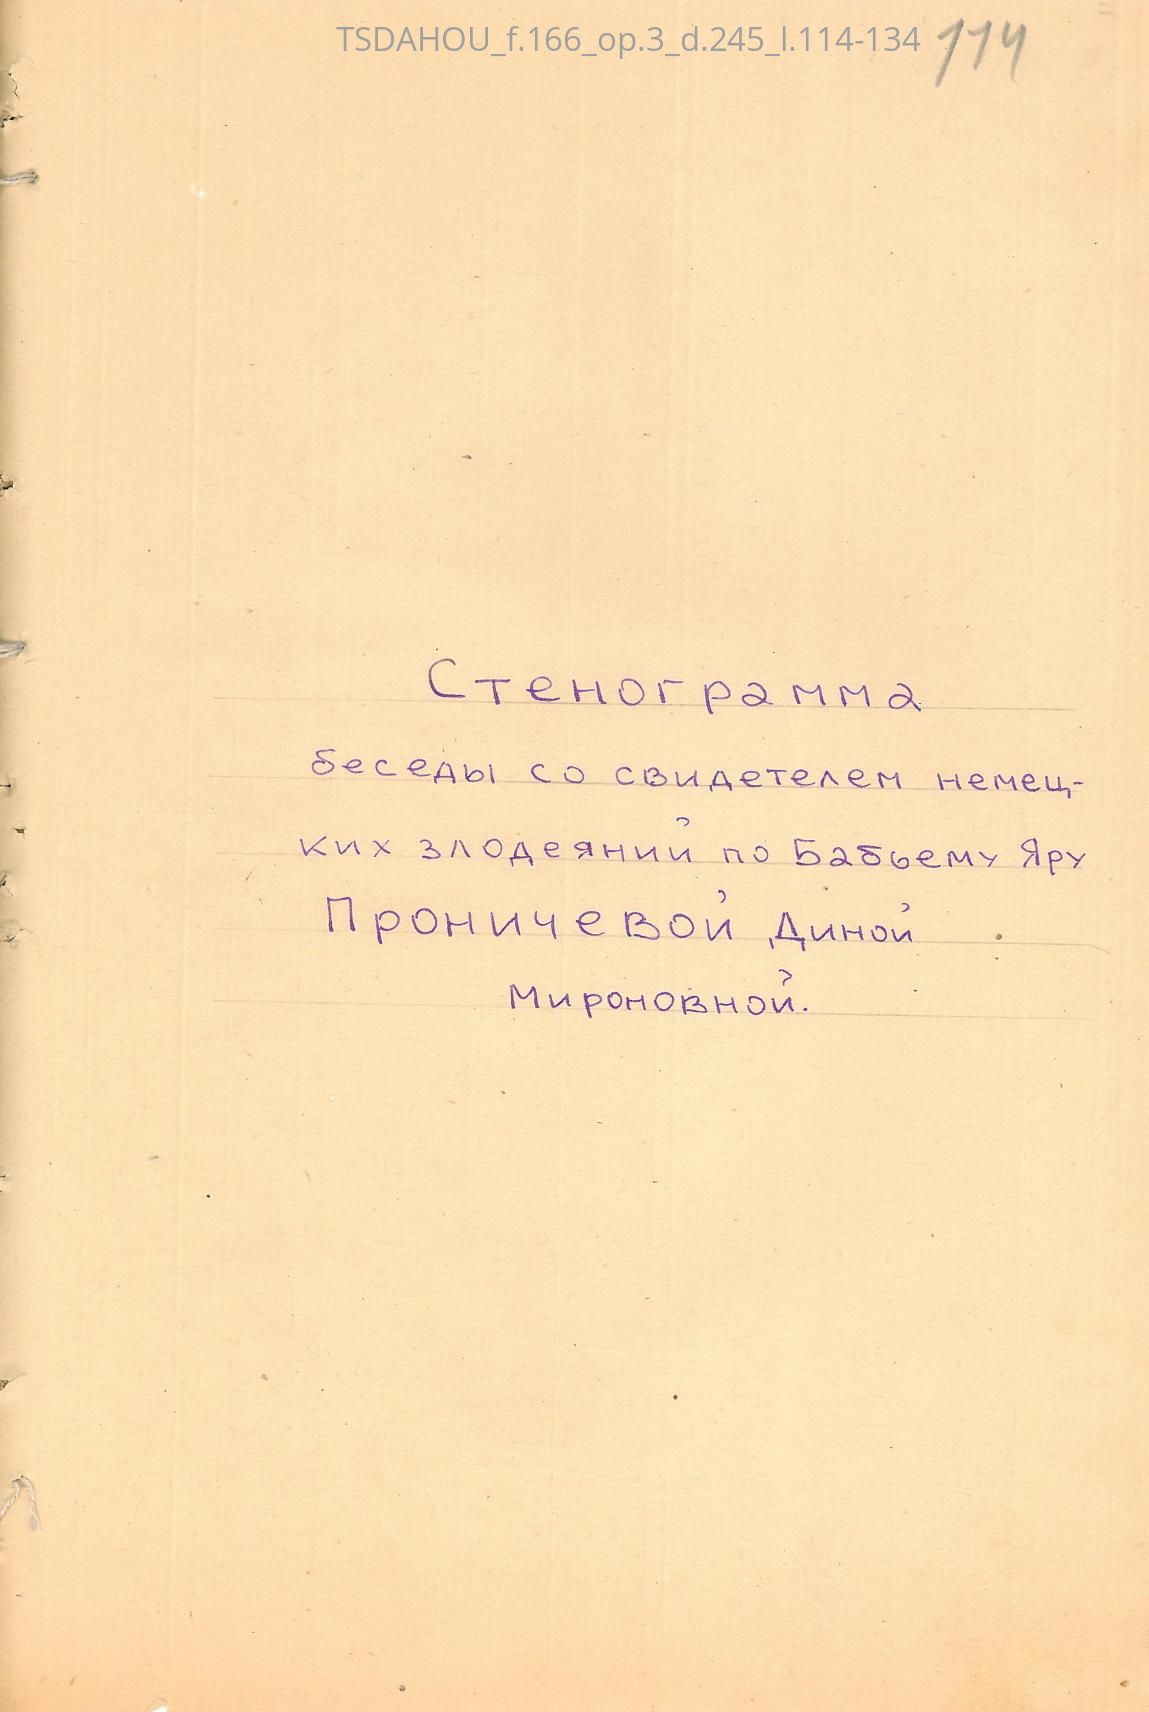 TSDAHOU_f.166_op.3_d.245_l.114-134 114
Стенограмма
беседы со свидетелем немец-
ких злодеяний по Бабьему Яру
Проничевой Диной
Мироновной.